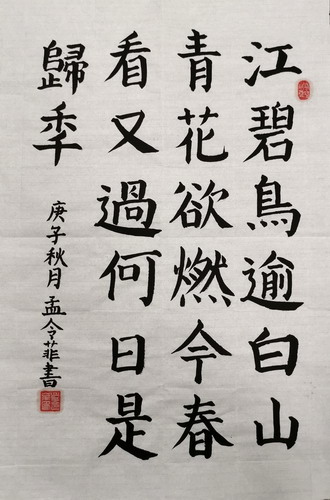 江碧鳥逾白山
青花欲燃今春
看又過何日是
歸秊
庚子秋月孟令菲書